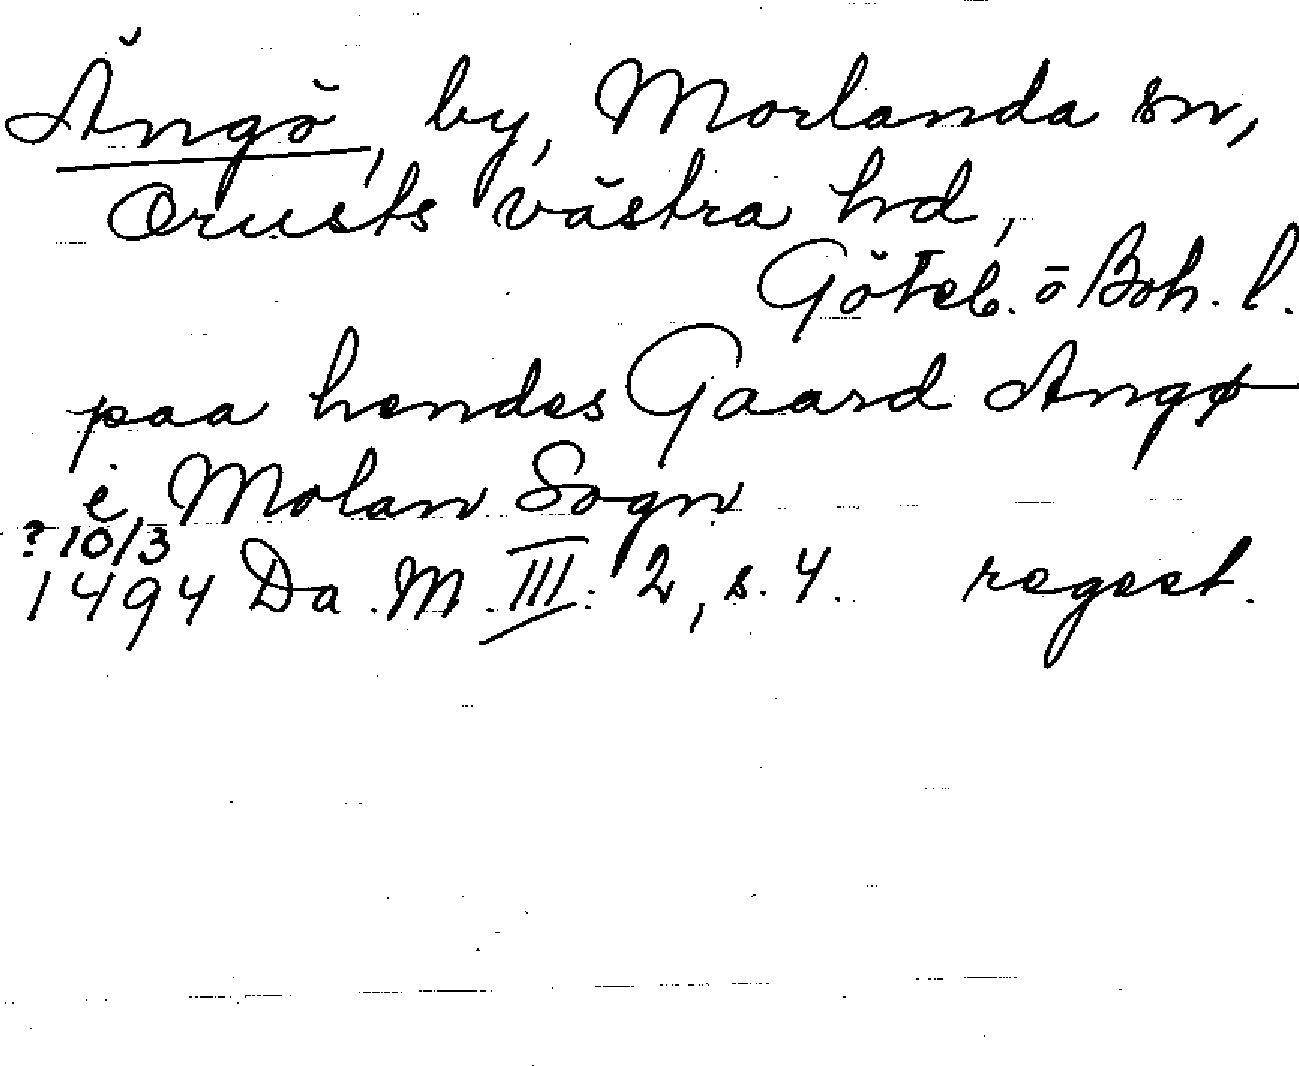 Ängö, by, Morlanda sn,
Orusts västra hd,
Göteb. o Boh. l.
paa hendes Gaard Angø
i Molan Sogn
? 10/3
1494 Da. M. III: 2, s. 4. regest.